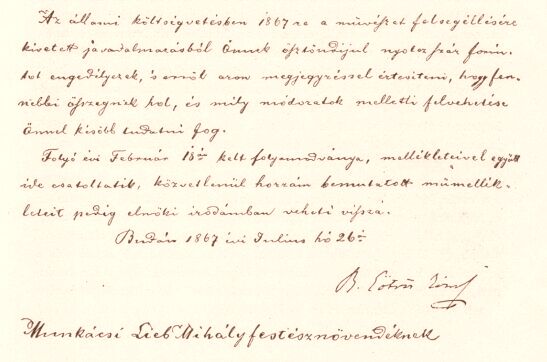 Az állami költségvetésben 1867 re a művészet felsegéllésére
kivetett javadalmazásból Önnek ösztöndíjul nyolczszáz forin-
tot engedélyezek, s erről azon megjegyzéssel értesítem, hogy fen-
nebbi összegnek hol, és mily módozatok melletti felvehetése
Önnel később tudatni fog.
Folyó évi Február 18án kelt folyamodványa, mellékleteivel együtt
ide csatoltatik, közvetlenül hozzám bemutatott műmellék-
leteit pedig elnöki irodámban veheti vissza.
Budán 1867 évi Julius hó 26án
B. Eötvös József
Munkácsi Lieb Mihály festésznövendéknek